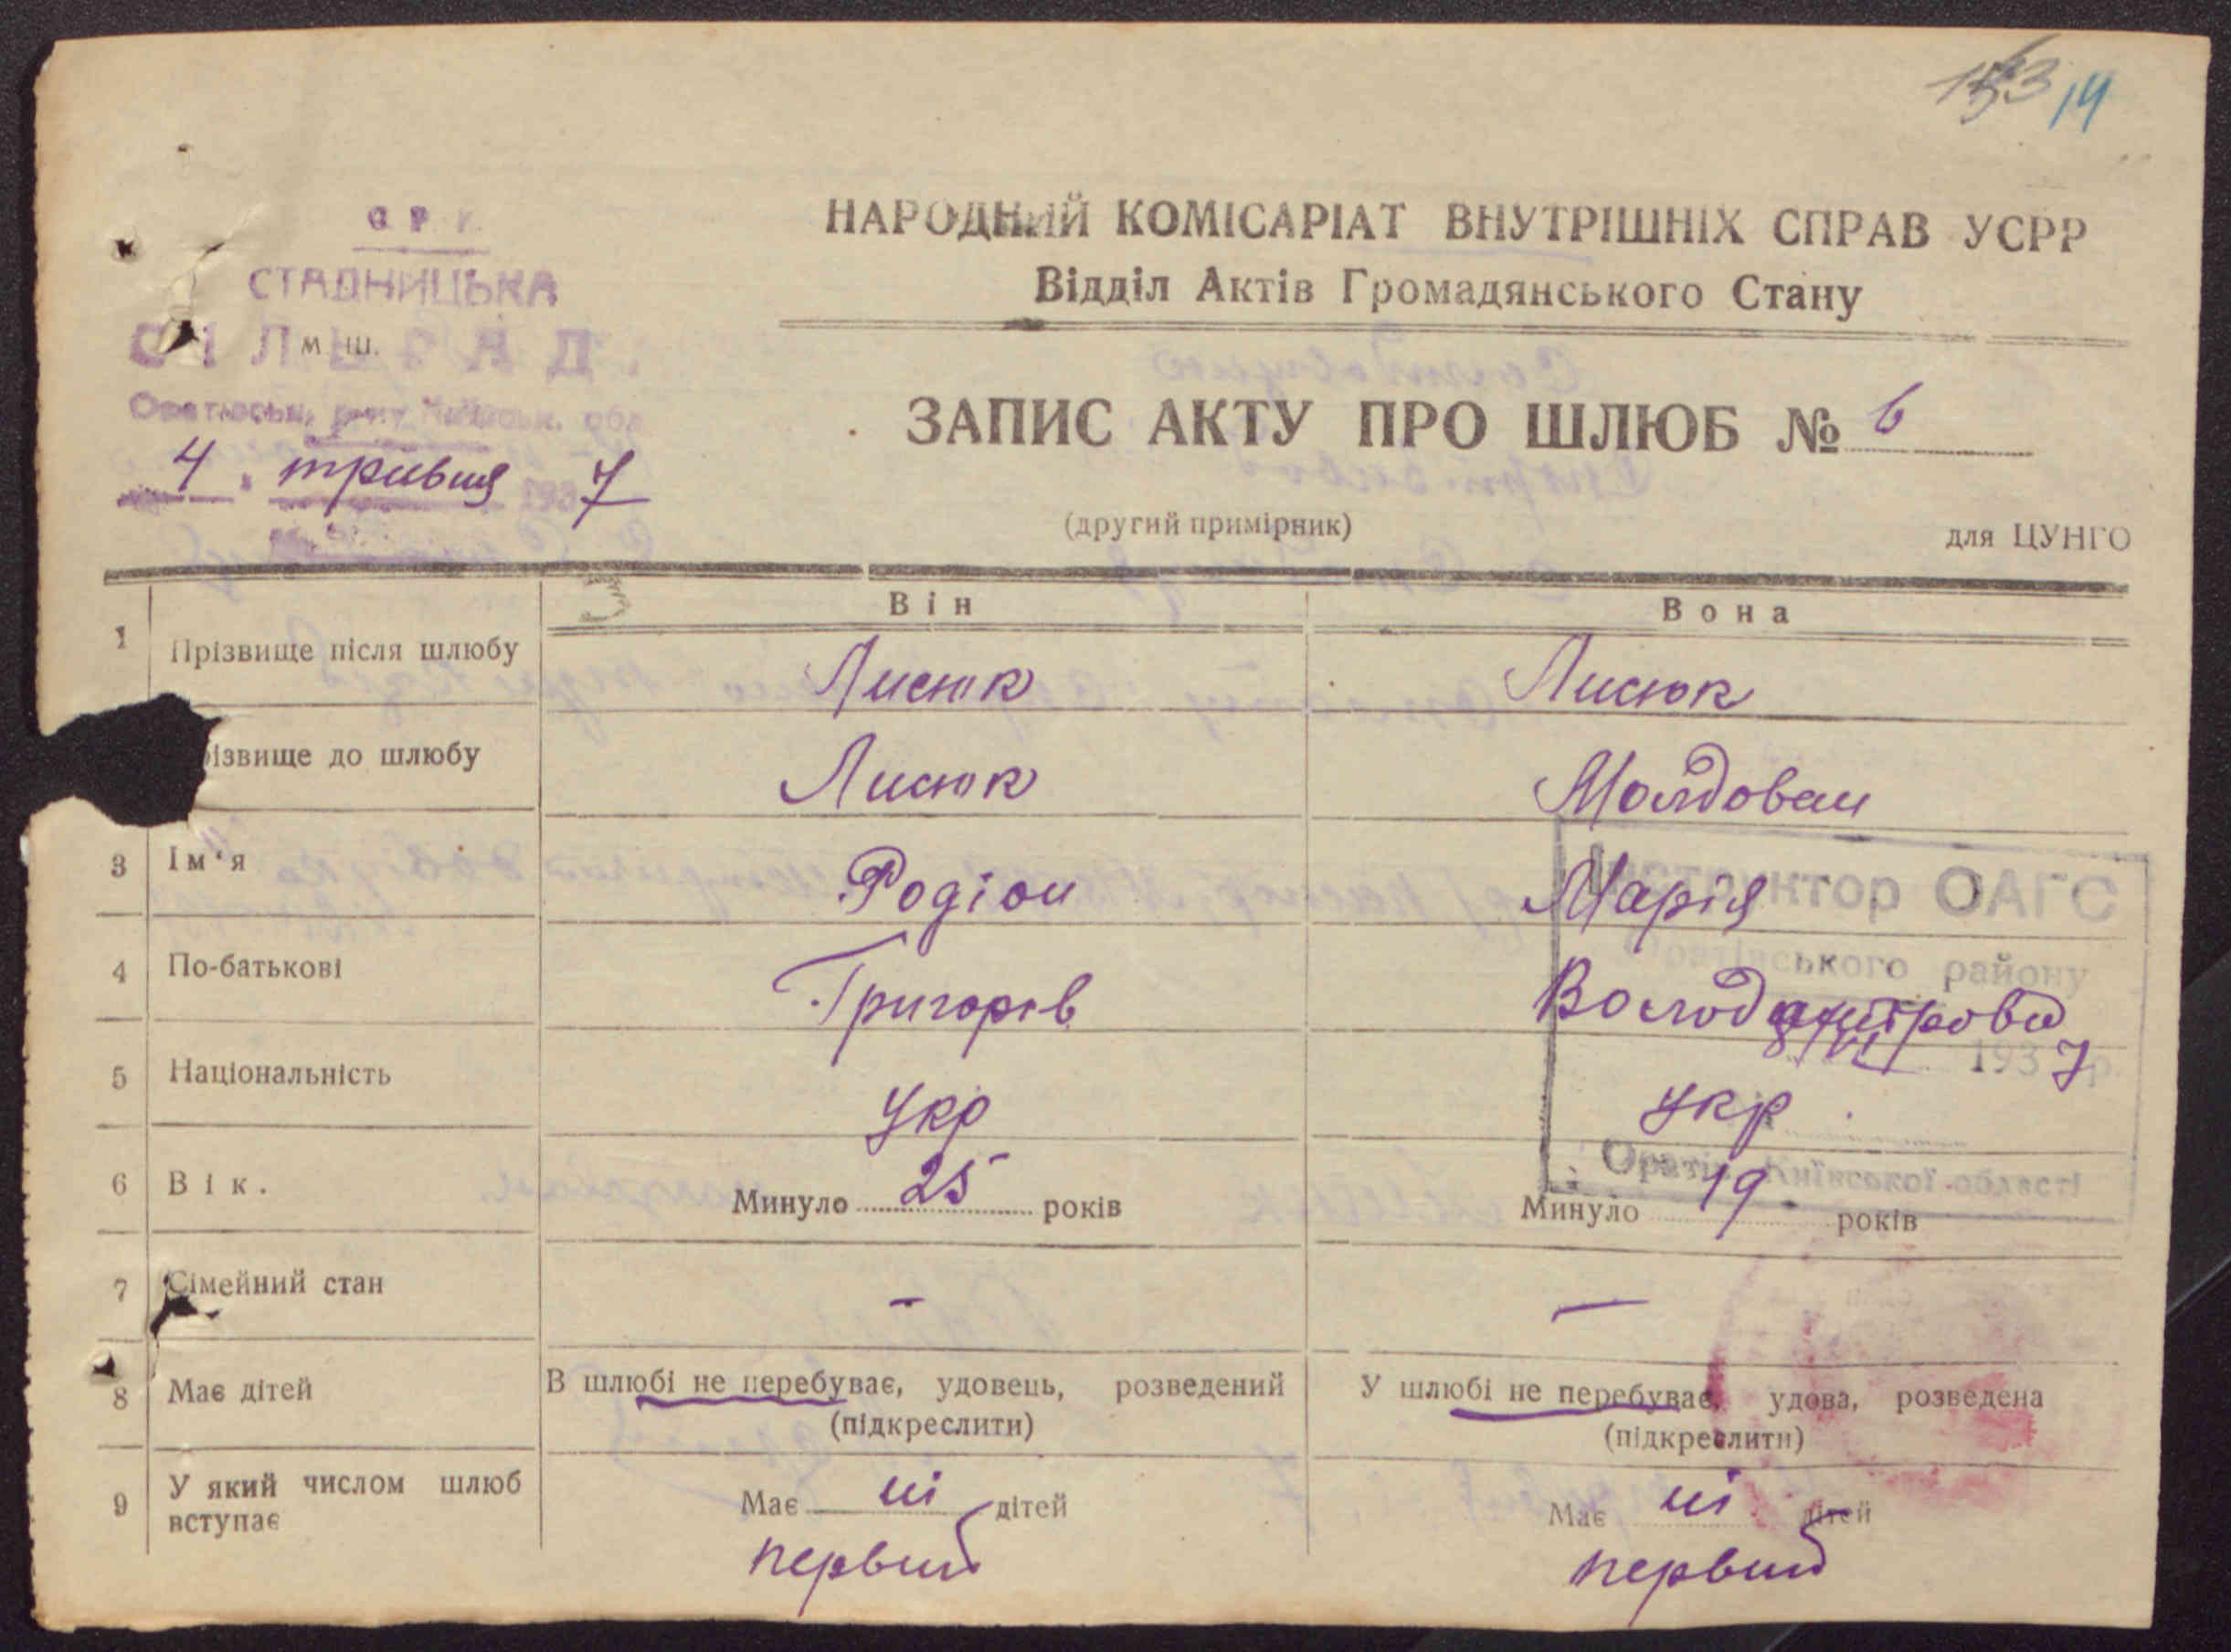 14
НАРОДНИЙ КОМІСАРІАТ ВНУТРІШНІХ СПРАВ УСРР
Відділ Актів Громадянського Стану
СТАДНИЦЬКА
СІЛЬРАД
м. ш.
4 тривня 1937
ЗАПИС АКТУ ПРО ШЛЮБ № 6
(другий примірник)
для ЦУНГО
Він
Вона
1 Прізвище після шлюбу Лисюк Лисюк
різвище до шлюбу Лисюк Молдован
3 Ім'я Родіон Марія
4 По-батькові Григорів
5 Національність Укр Укр
6 Вік. Минуло 25 років Минуло 19 років
7 Сімейний стан – –
8 Має дітей В шлюбі не перебуває, удовець, розведений У шлюбі не перебуває, удова, розведена
(підкреслити) (підкреслити)
9 У який числом шлюб вступає Має ні дітей Має ні дітей
первий первий
Інструктор ОАГС
Оратівського району
1937 р.
Оратів Київської області